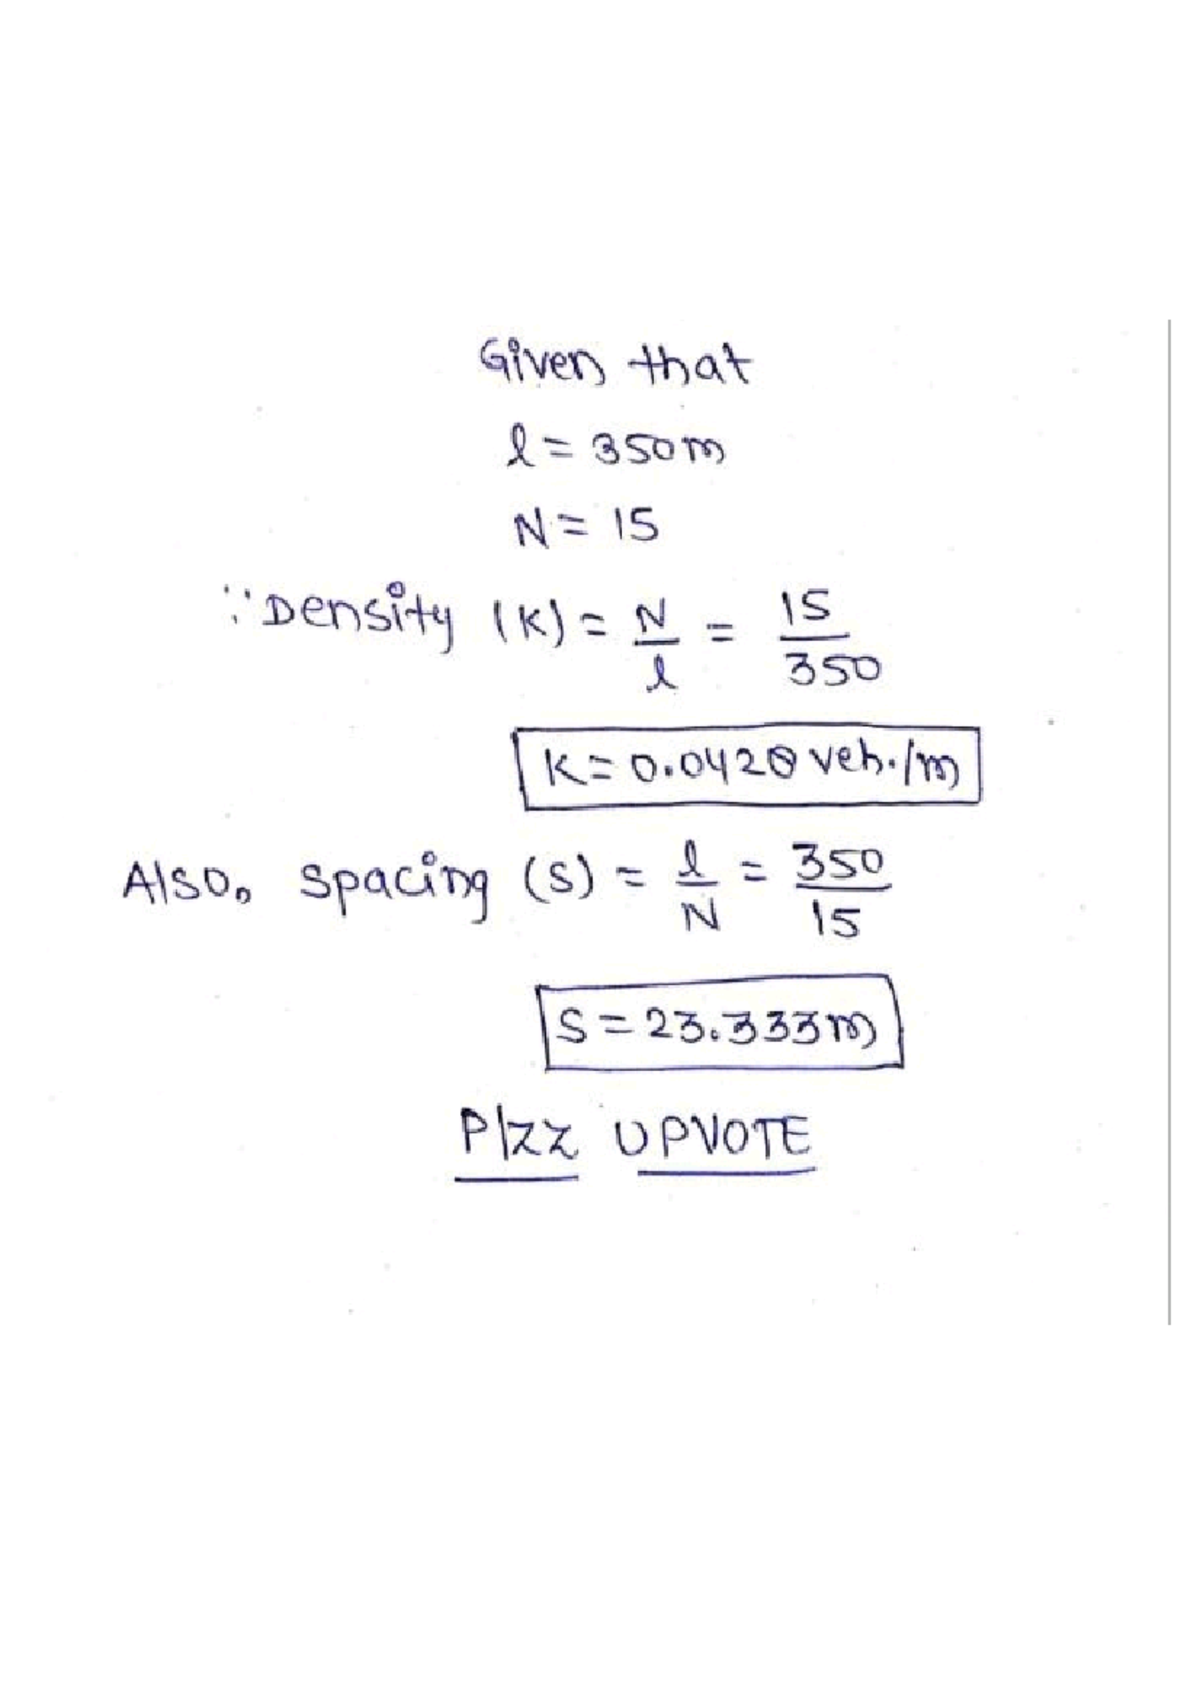 Given that
l = 350m
N = 15
∵ Density (K) = N/l = 15/350
K = 0.0428 veh./m
Also, Spacing (S) = l/N = 350/15
S = 23.333m
Plzz UPVOTE